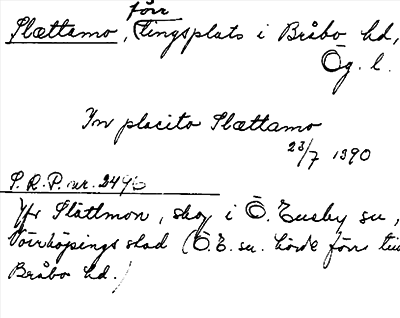 förr
Slættamo, tingsplats i Bråbo hd,
Ög. l.
In placito Slættamo
23/7 1390
S. R. P. nr. 2496
Jfr Slättmon, skog i Ö. Eneby sn,
Norrköpings stad (Ö. E. sn. hörde förr till
Bråbo hd.)